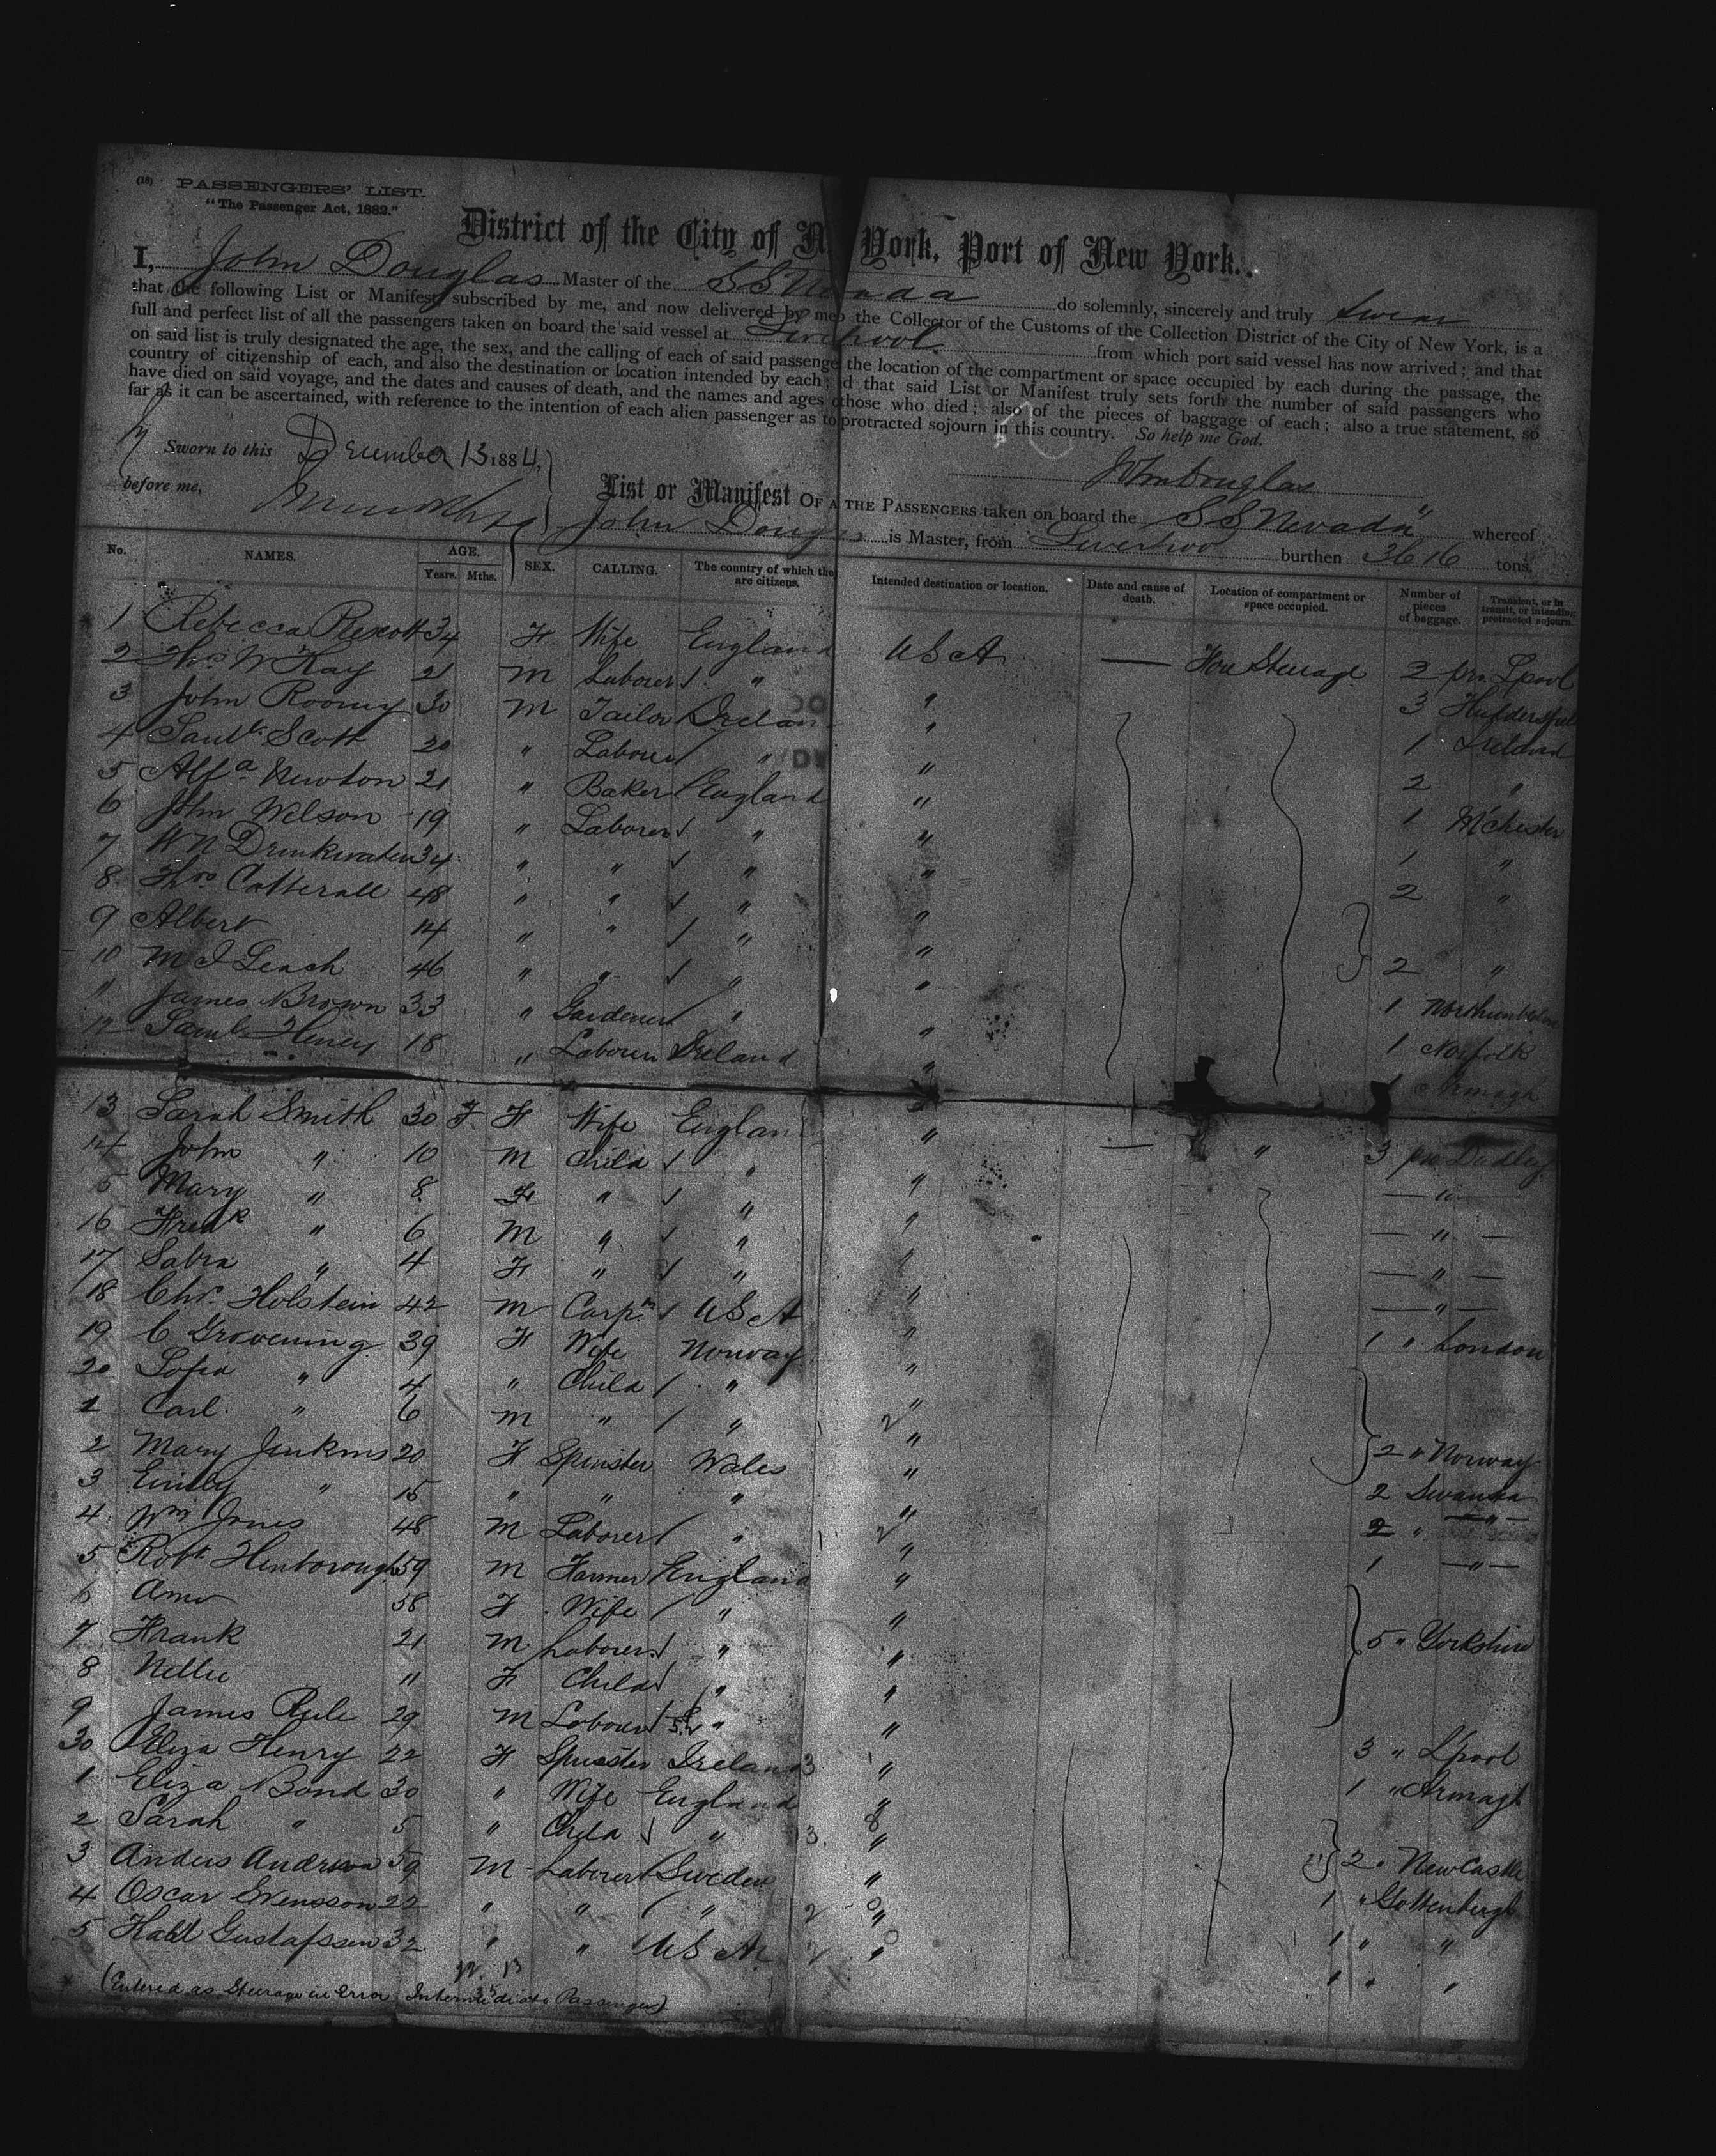 (18) PASSENGERS' LIST.
"The Passenger Act, 1882."
District of the City of N York, Port of New York.
I, John Douglas Master of the SS Nevada do solemnly, sincerely and truly Swear
that the following List or Manifest, subscribed by me, and now delivered by me the Collector of the Customs of the Collection District of the City of New York, is a
full and perfect list of all the passengers taken on board the said vessel at Liverpool from which port said vessel has now arrived; and that
on said list is truly designated the age, the sex, and the calling of each of said passenge the location of the compartment or space occupied by each during the passage, the
country of citizenship of each, and also the destination or location intended by each; d that said List or Manifest truly sets forth the number of said passengers who
have died on said voyage, and the dates and causes of death, and the names and ages those who died; also of the pieces of baggage of each; also a true statement, so
far as it can be ascertained, with reference to the intention of each alien passenger as to protracted sojourn in this country. So help me God.
Sworn to this December 13 1884,
before me,
Jno Douglas
List or Manifest OF A THE PASSENGERS taken on board the SS Nevada" whereof
John Doug is Master, from Liverpool burthen 3616 tons.
No. NAMES. AGE. Years. Mths. SEX. CALLING. The country of which the are citizens. Intended destination or location. Date and cause of death. Location of compartment or space occupied. Number of pieces of baggage. Transient, or in transit, or intending protracted sojourn.
1 Rebecca Prescott 34 F Wife England USA — Fore Steerage 2 pro Lpool
2 Thos W Kay 21 M Laborer " " 3 Huddersfiel
3 John Rooney 30 M Tailor Irelan " 1 Ireland
4 Saml. Scott 20 " Labourer " " 2 "
5 Alfd Newton 21 " Baker England " 1 M'chester
6 John Wilson 19 " Laborer " " 1 "
7 W N Drinkwater 34 " " " " 2 "
8 Thos Catterall 48 " " " "
9 Albert 14 " " " " 2 "
10 M J Leach 46 " " " " 1 Northumberlan
11 James Brown 33 " Gardener " " 1 Norfolk
12 Saml. Henry 18 " Laborer Ireland " 1 Armagh
13 Sarah Smith 30 F F Wife Englan " — " 3 pro Dudley
14 John " 10 M Child " " — " —
15 Mary " 8 F " " " — " —
16 Fredk " 6 M " " " — " —
17 Sabra " 4 F " " " — " —
18 Chr. Holstein 42 M Carpr. USA " 1 " London
19 C Grovening 39 F Wife Norway "
20 Sofia " 4 " Child " "
1 Carl " 6 M " " " 2 " Norway
2 Mary Jenkins 20 F Spinster Wales " 2 Swansea
3 Emily " 15 " " " " 2 " — " —
4 Wm Jones 48 M Laborer " " 1 — " —
5 Robt Hinborough 59 M Farmer England "
6 Ann 58 F Wife " "
7 Frank 21 M Laborer " " 5 " Yorkshire
8 Nellie 11 F Child " "
9 James Rule 29 M Labourer " " 3 " Lpool
30 Eliza Henry 22 F Spinster Ireland " 1 " Armagh
1 Eliza Bond 30 " Wife England "
2 Sarah " 5 " Child " " 2 " NewCastle
3 Anders Andersson 59 M Laborer Sweden " 1 " Gottenburgh
4 Oscar Svensson 22 " " " " 1 " "
5 Gustafsson 32 " " USA " 1 " "
(Entered as Steerage in Error Intermediate Passenger)